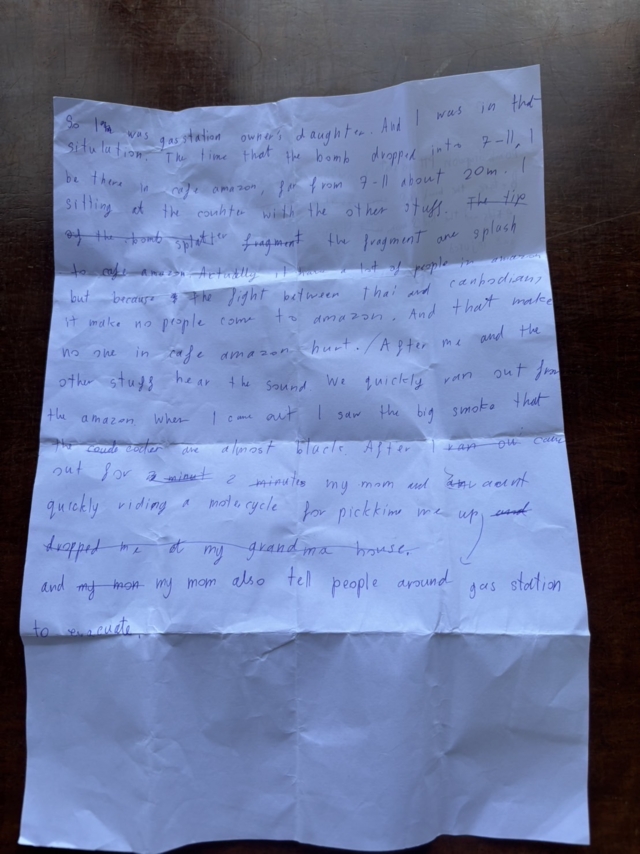 So I'm was gasstation owner's daughter. And I was in that
situlation. The time that the bomb dropped into 7-11, I
be there in cafe amazon, far from 7-11 about 20m. I
sitting at the counter with the other stuff. The tip
of the bomb splatter fragment the fragment are splash
to cafe amazon Artually it have a lot of people in amazon
but because the fight between Thai and canbodians,
it make no people come to amazon. And that make
no one in cafe amazon hurt. / After me and the
other stuff hear the sound We quickly ran out from
the amazon when I came out I saw the big smoke that
the are almost black. After I ran ou came
out for 2 minut 2 minutes my mom and aount
quickly riding a motercycle for pickkime me up, and
dropped me at my grandma house.
and my mon my mom also tell people around gas station
to evacuate.